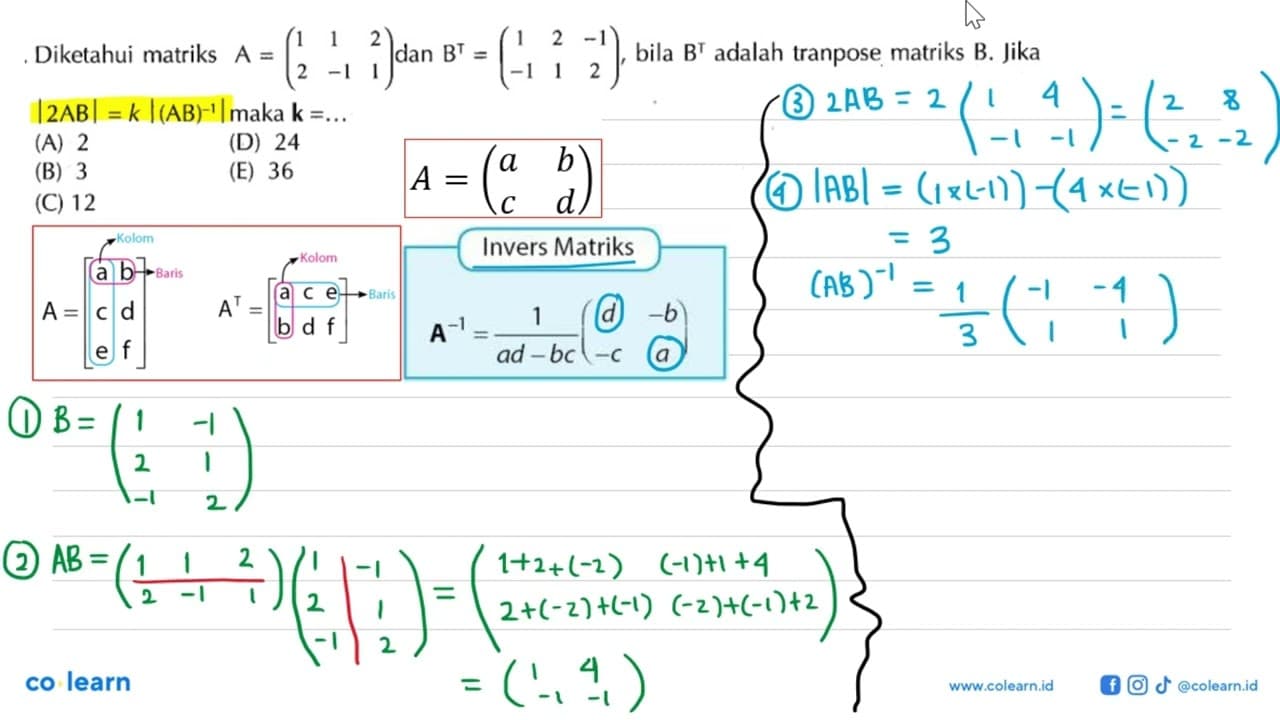 . Diketahui matriks A = (1 1 2 / 2 -1 1) dan Bᵀ = (1 2 -1 / -1 1 2), bila Bᵀ adalah tranpose matriks B. Jika
|2AB| = k |(AB)⁻¹| maka k =...
(A) 2 (D) 24
(B) 3 (E) 36
(C) 12
A = (a b / c d)
Kolom
Baris
A = [a b / c d / e f]
Kolom
Baris
Aᵀ = [a c e / b d f]
Invers Matriks
A⁻¹ = 1/(ad – bc) (d –b / –c a)
① B = (1 -1 / 2 1 / -1 2)
② AB = (1 1 2 / 2 -1 1) (1 -1 / 2 1 / -1 2) = (1+2+(-2) (-1)+1+4 / 2+(-2)+(-1) (-2)+(-1)+2)
= (1 4 / -1 -1)
③ 2AB = 2 (1 4 / -1 -1) = (2 8 / -2 -2)
④ |AB| = (1×(-1)) - (4×(-1))
= 3
(AB)⁻¹ = 1/3 (-1 -4 / 1 1)
co learn
www.colearn.id
@colearn.id